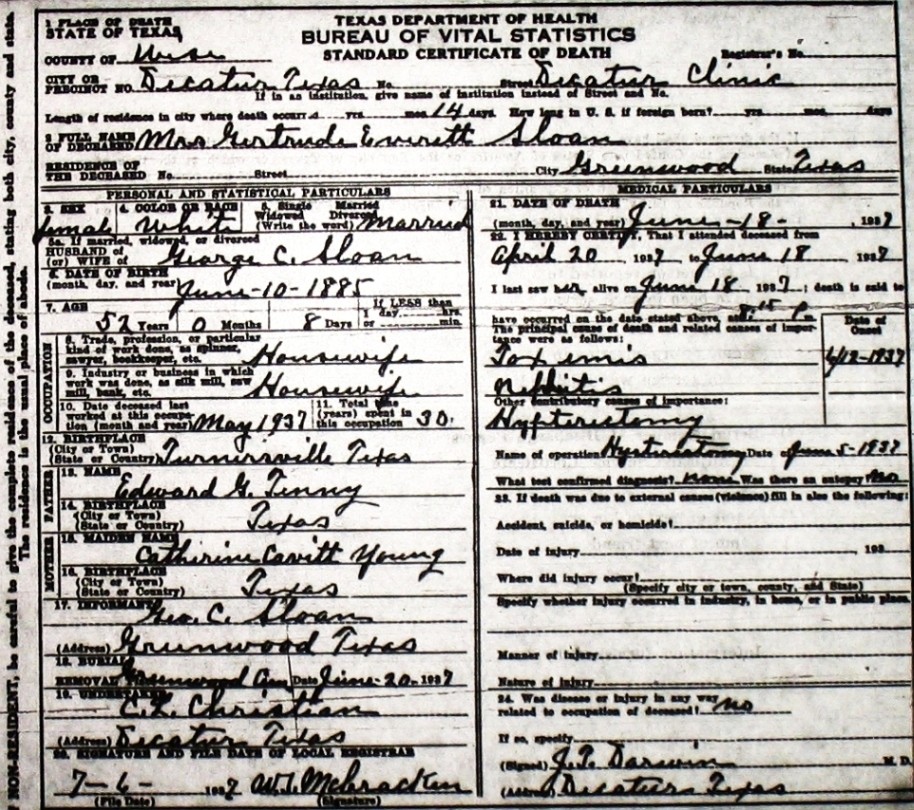 TEXAS DEPARTMENT OF HEALTH
BUREAU OF VITAL STATISTICS
STANDARD CERTIFICATE OF DEATH
1 PLACE OF DEATH
STATE OF TEXAS
COUNTY OF Wise
Registrar's No.
CITY OR PRECINCT NO. Decatur Texas No. Street Decatur Clinic
If in an institution, give name of institution instead of Street and No.
Length of residence in city where death occurs yrs. mos. 14 days. How long in U. S. if foreign born? yrs. mos. days
2 FULL NAME OF DECEASED Mrs Gertrude Everett Sloan
RESIDENCE OF THE DECEASED No. Street City Greenwood State Texas
PERSONAL AND STATISTICAL PARTICULARS
3. SEX female
4. COLOR OR RACE White
5. Single Married Widowed Divorced (Write the word) Married
5a. If married, widowed, or divorced HUSBAND OF (or) WIFE OF George C. Sloan
6. DATE OF BIRTH (month, day, and year) June-10-1885
7. AGE 52 Years 0 Months 8 Days If LESS than 1 day, hrs. or min.
OCCUPATION
8. Trade, profession, or particular kind of work done, as spinner, sawyer, bookkeeper, etc. Housewife
9. Industry or business in which work was done, as silk mill, saw mill, bank, etc. Housewife
10. Date deceased last worked at this occupation (month and year) May 1937
11. Total time (years) spent in this occupation 30.
12. BIRTHPLACE (City or Town) (State or Country) Turnirsville Texas
FATHER
13. NAME Edward G. Tinny
14. BIRTHPLACE (City or Town) (State or Country) Texas
MOTHER
15. MAIDEN NAME Catherine Cavitt Young
16. BIRTHPLACE (City or Town) (State or Country) Texas
17. INFORMANT Geo. C. Sloan
(Address) Greenwood Texas
18. BURIAL REMOVAL Greenwood Cem Date June-20-1937
19. UNDERTAKER C.L. Christian
(Address) Decatur Texas
20. SIGNATURE AND FILE DATE OF LOCAL REGISTRAR
7-6- 1937 W.T. McCracken
(File Date) (Signature)
MEDICAL PARTICULARS
21. DATE OF DEATH (month, day, and year) June-18-, 1937
22. I HEREBY CERTIFY, That I attended deceased from
April 20, 1937 to June 18 1937
I last saw her alive on June 18 1937; death is said to
have occurred on the date stated above, at 8:15 P m.
The principal cause of death and related causes of importance were as follows:
Date of Onset
Toxemis 6/12-1937
Nephritis
Other contributory causes of importance:
Hypterectomy
Name of operation Hystirectomy Date of June 5-1937
What test confirmed diagnosis? none Was there an autopsy? No
23. If death was due to external causes (violence) fill in also the following:
Accident, suicide, or homicide?
Date of injury , 193
Where did injury occur?
(Specify city or town, county, and State)
Specify whether injury occurred in industry, in home, or in public place.
Manner of injury
Nature of injury
24. Was disease or injury in any way related to occupation of deceased? no
If so, specify
(Signed) J.T. Darwin M. D.
(Address) Decatur Texas
NON-RESIDENT, be careful to give the complete residence of the deceased, stating both city, county and state.
The residence is the usual place of abode.